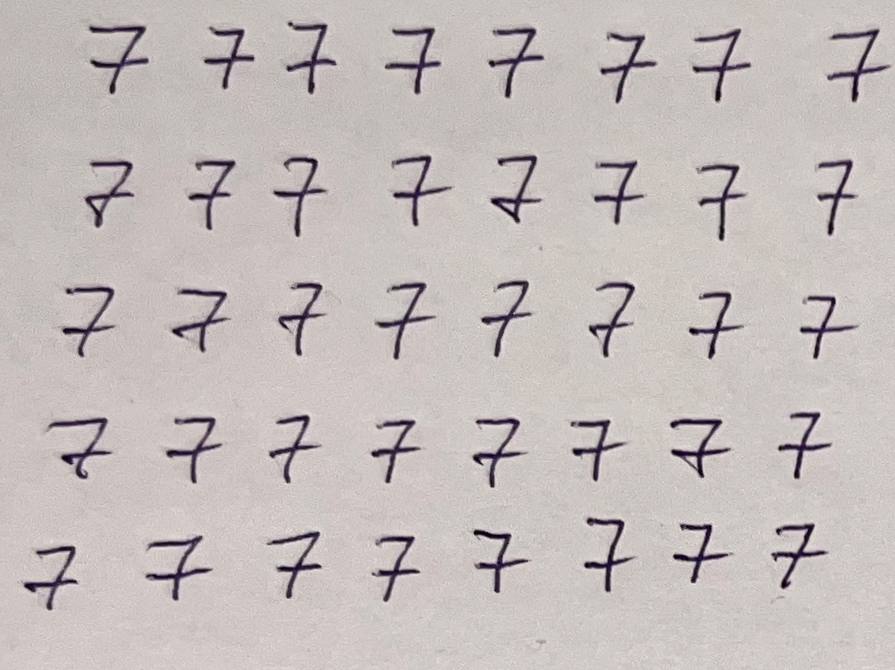 7 7 7 7 7 7 7 7
7 7 7 7 7 7 7 7
7 7 7 7 7 7 7 7
7 7 7 7 7 7 7 7
7 7 7 7 7 7 7 7